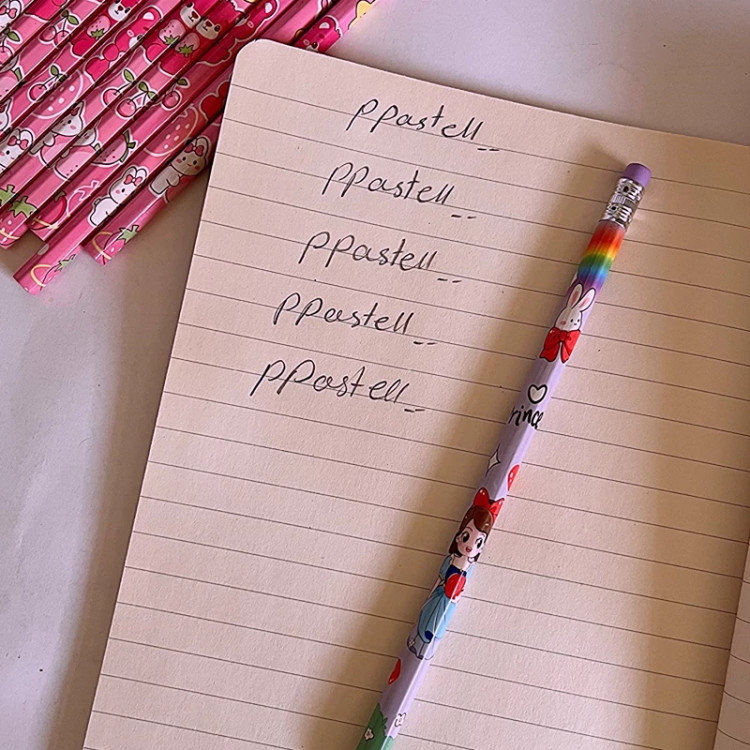 ppastell__
ppastell__
ppastell__
ppastell__
ppastell__